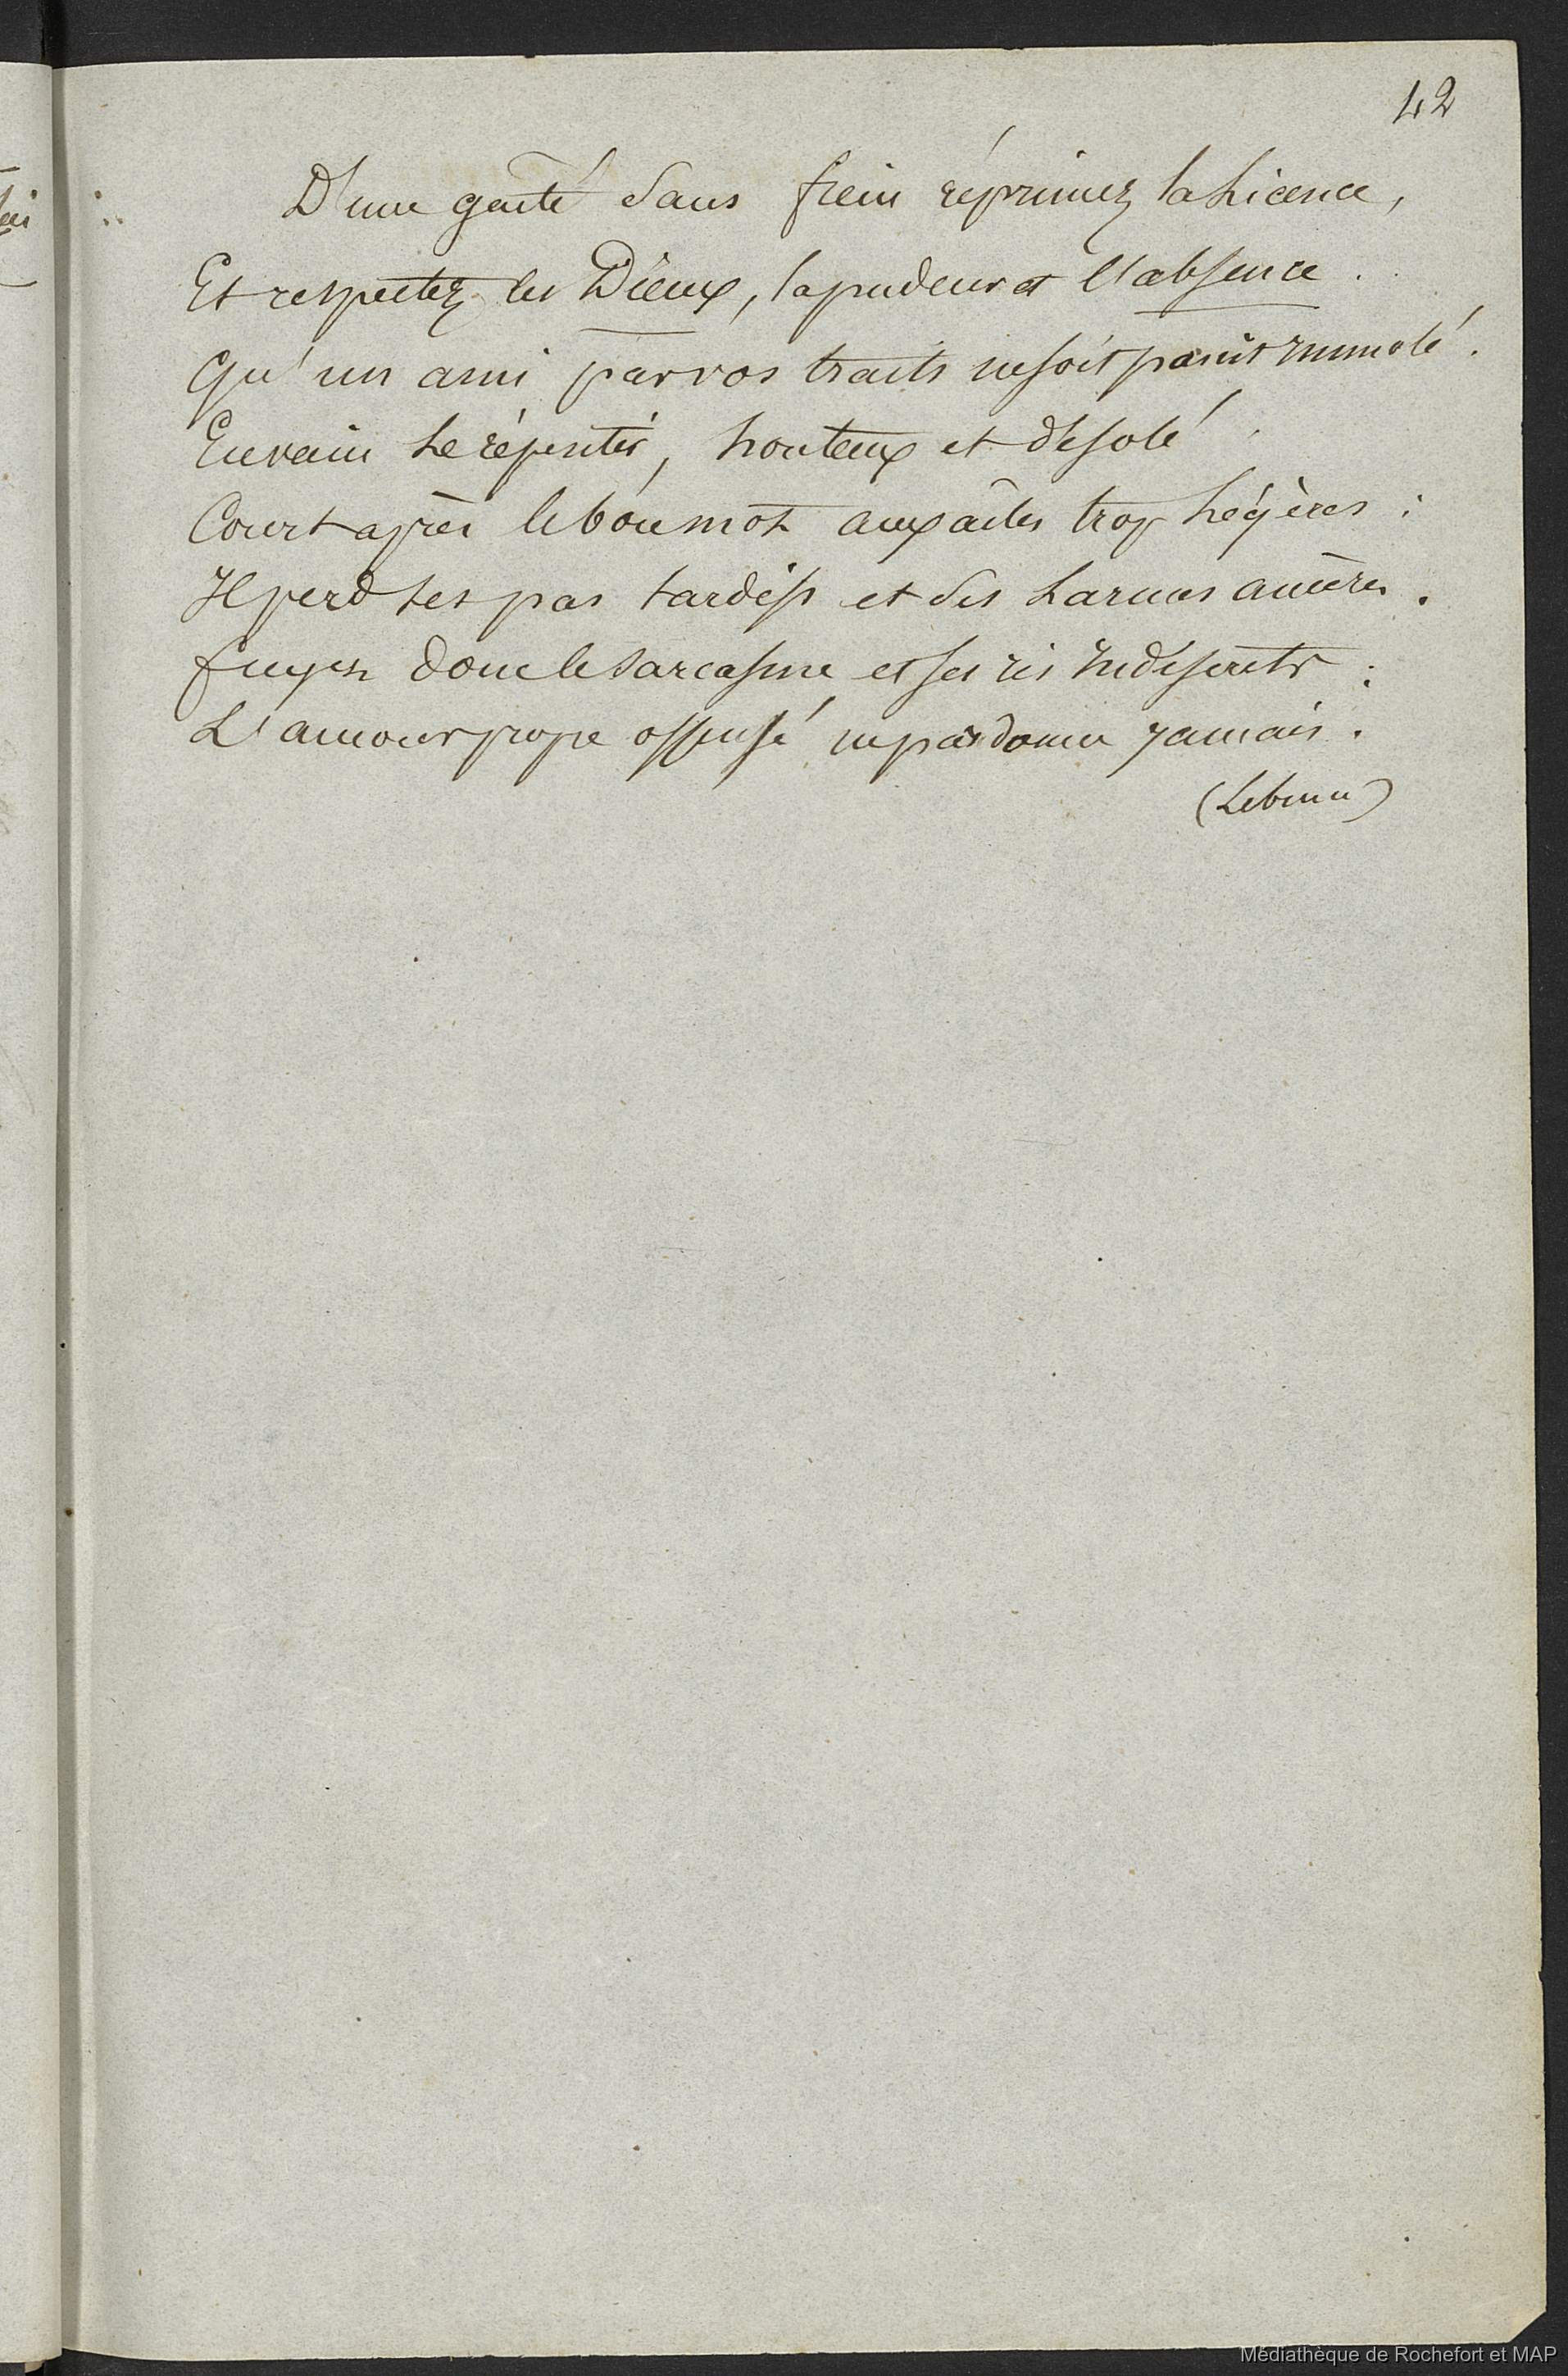 42
D'une gaité sans frein réprimez la Licence,
Et respectez les Dieux, la pudeur et l'absence.
Qu'un ami par vos traits ne soit point immolé.
En vain Le répentir, honteux et désolé
Court après le bon mot aux aîles trop Légères :
Il perd ses pas tardifs et ses Larmes amères.
fuyez donc le sarcasme et ses ris indiscrets :
L'amour propre offensé ne pardonne jamais.
(Lebrun)
Médiathèque de Rochefort et MAP